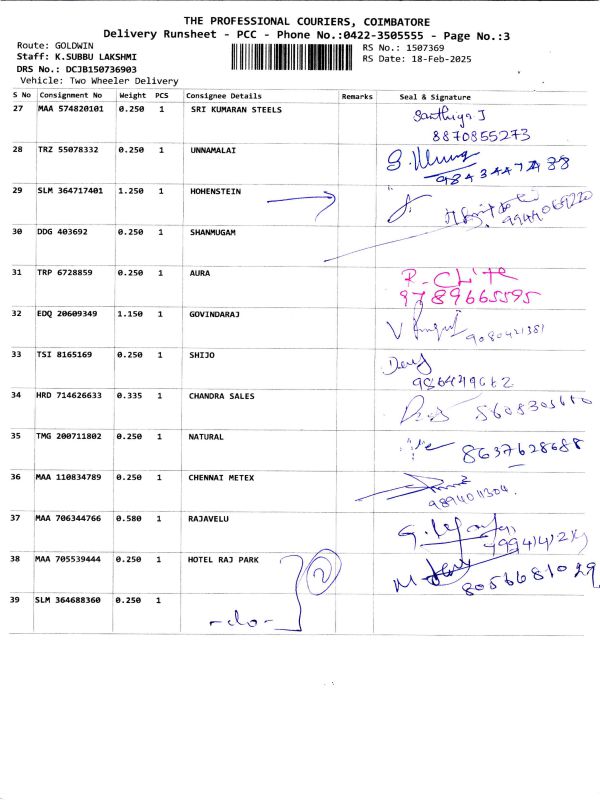 THE PROFESSIONAL COURIERS, COIMBATORE
Delivery Runsheet - PCC - Phone No.:0422-3505555 - Page No.:3
Route: GOLDWIN
Staff: K.SUBBU LAKSHMI
DRS No.: DCJB150736903
Vehicle: Two Wheeler Delivery
RS No.: 1507369
RS Date: 18-Feb-2025
S No Consignment No Weight PCS Consignee Details Remarks Seal & Signature
27 MAA 574820101 0.250 1 SRI KUMARAN STEELS Santhiya J
8870855273
28 TRZ 55078332 0.250 1 UNNAMALAI
9843447488
29 SLM 364717401 1.250 1 HOHENSTEIN
30 DDG 403692 0.250 1 SHANMUGAM
31 TRP 6728859 0.250 1 AURA
9789665595
32 EDQ 20609349 1.150 1 GOVINDARAJ
9080421381
33 TSI 8165169 0.250 1 SHIJO
34 HRD 714626633 0.335 1 CHANDRA SALES
35 TMG 200711802 0.250 1 NATURAL 8637628688
36 MAA 110834789 0.250 1 CHENNAI METEX
9894011304
37 MAA 706344766 0.580 1 RAJAVELU
38 MAA 705539444 0.250 1 HOTEL RAJ PARK 2
8056681029
39 SLM 364688360 0.250 1 -do-